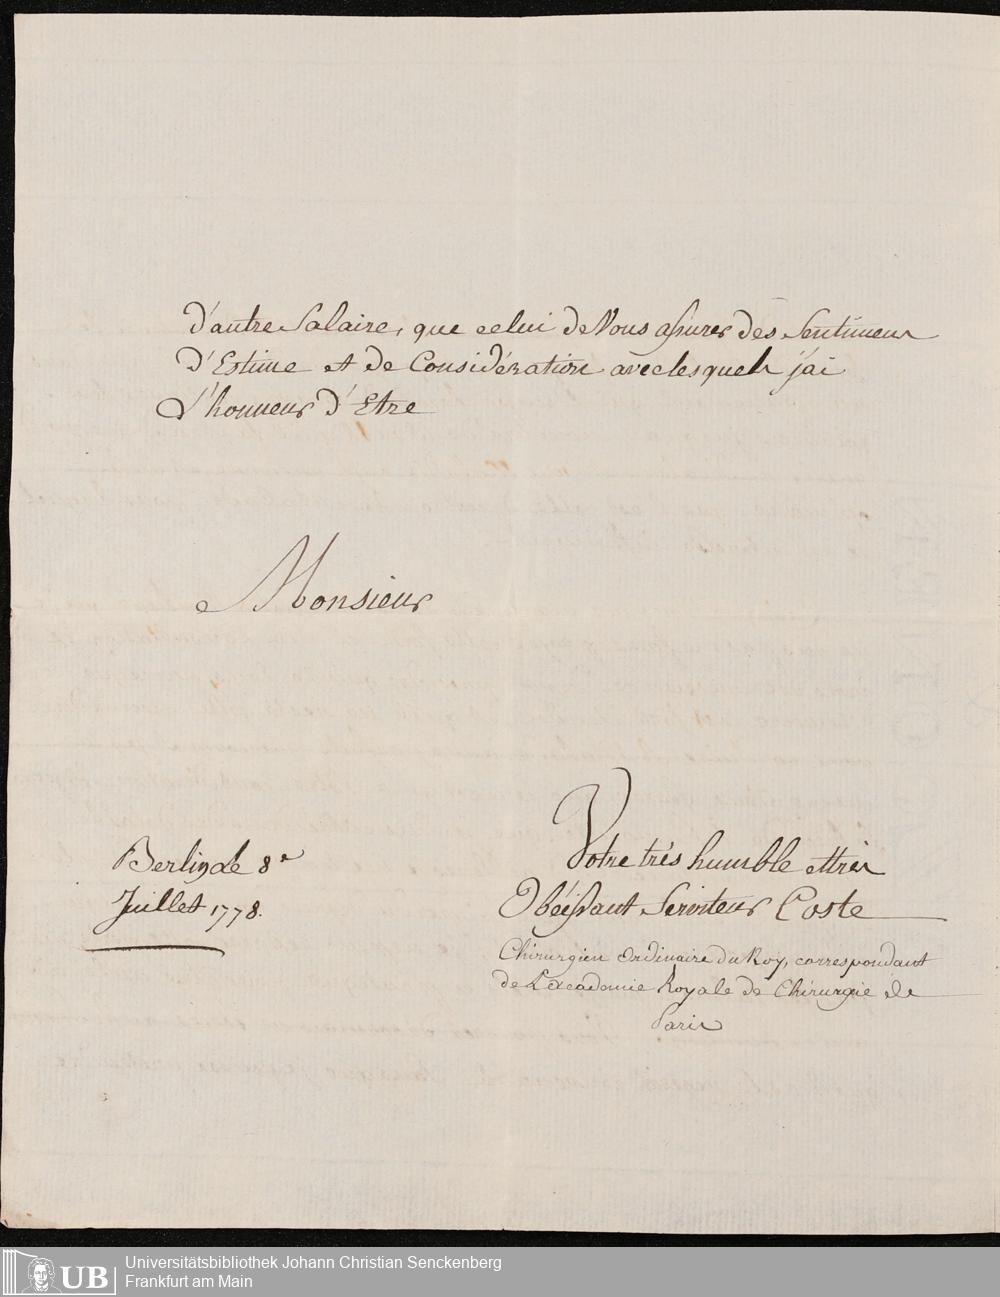 d'autre Salaire, que celui de Vous assurer des Sentimens
d'Estime et de Considération avec lesquels j'ai
L'honneur d'Etre
Monsieur
Votre très humble et très
Obéissant Serviteur Coste
Berlin le 8e
Juillet 1778.
Chirurgien Ordinaire du Roy, correspondant
de L'Academie Royale de Chirurgie de
Paris
UB
Universitätsbibliothek Johann Christian Senckenberg
Frankfurt am Main